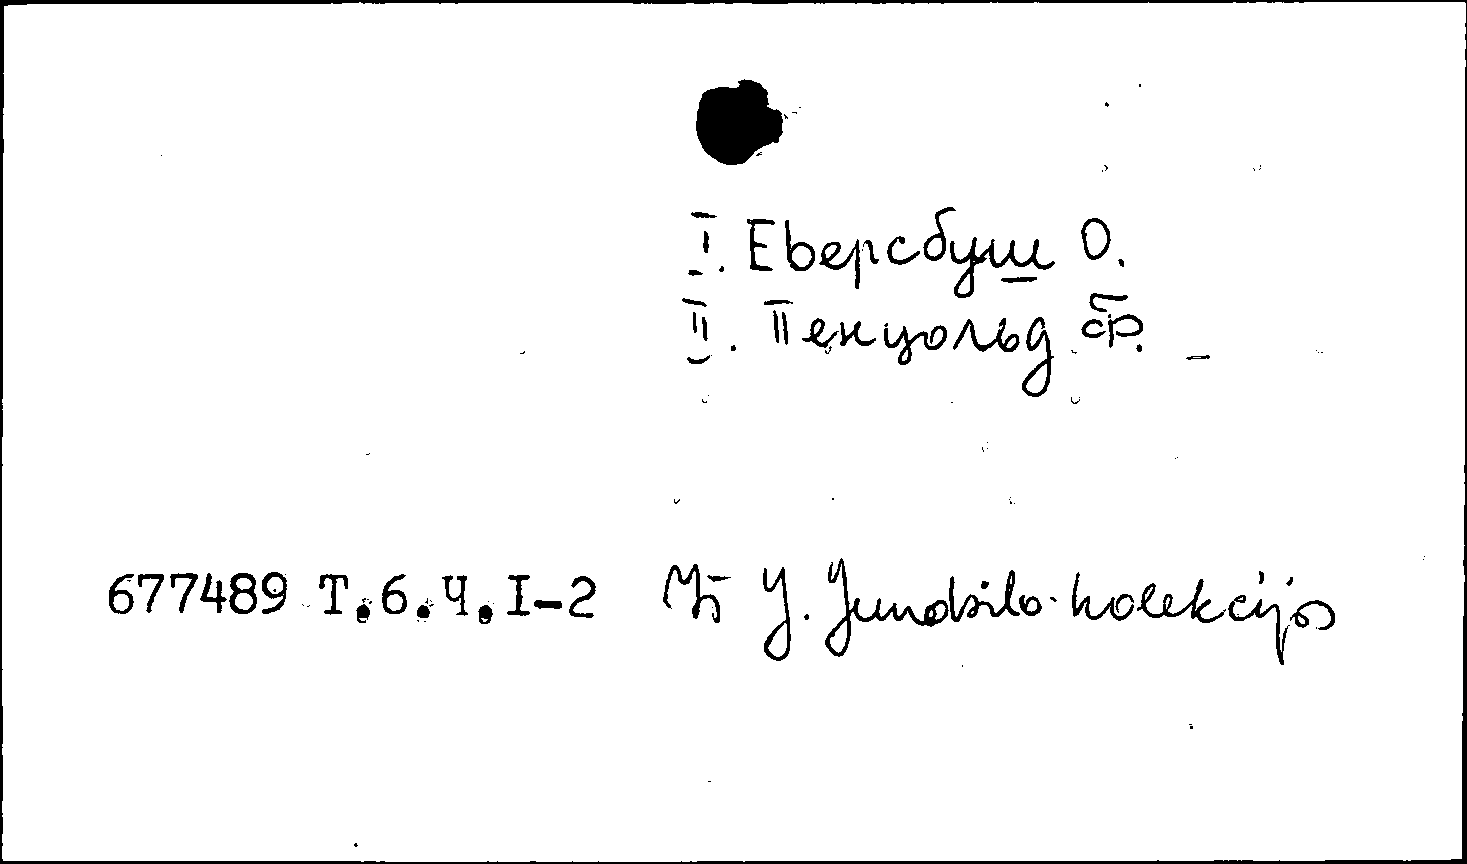 I. Еверсбуш О.
II. Пенцольд Ф.
677489 Т.6.Ч.I-2 Iš J. Jundzilo kolekcijos